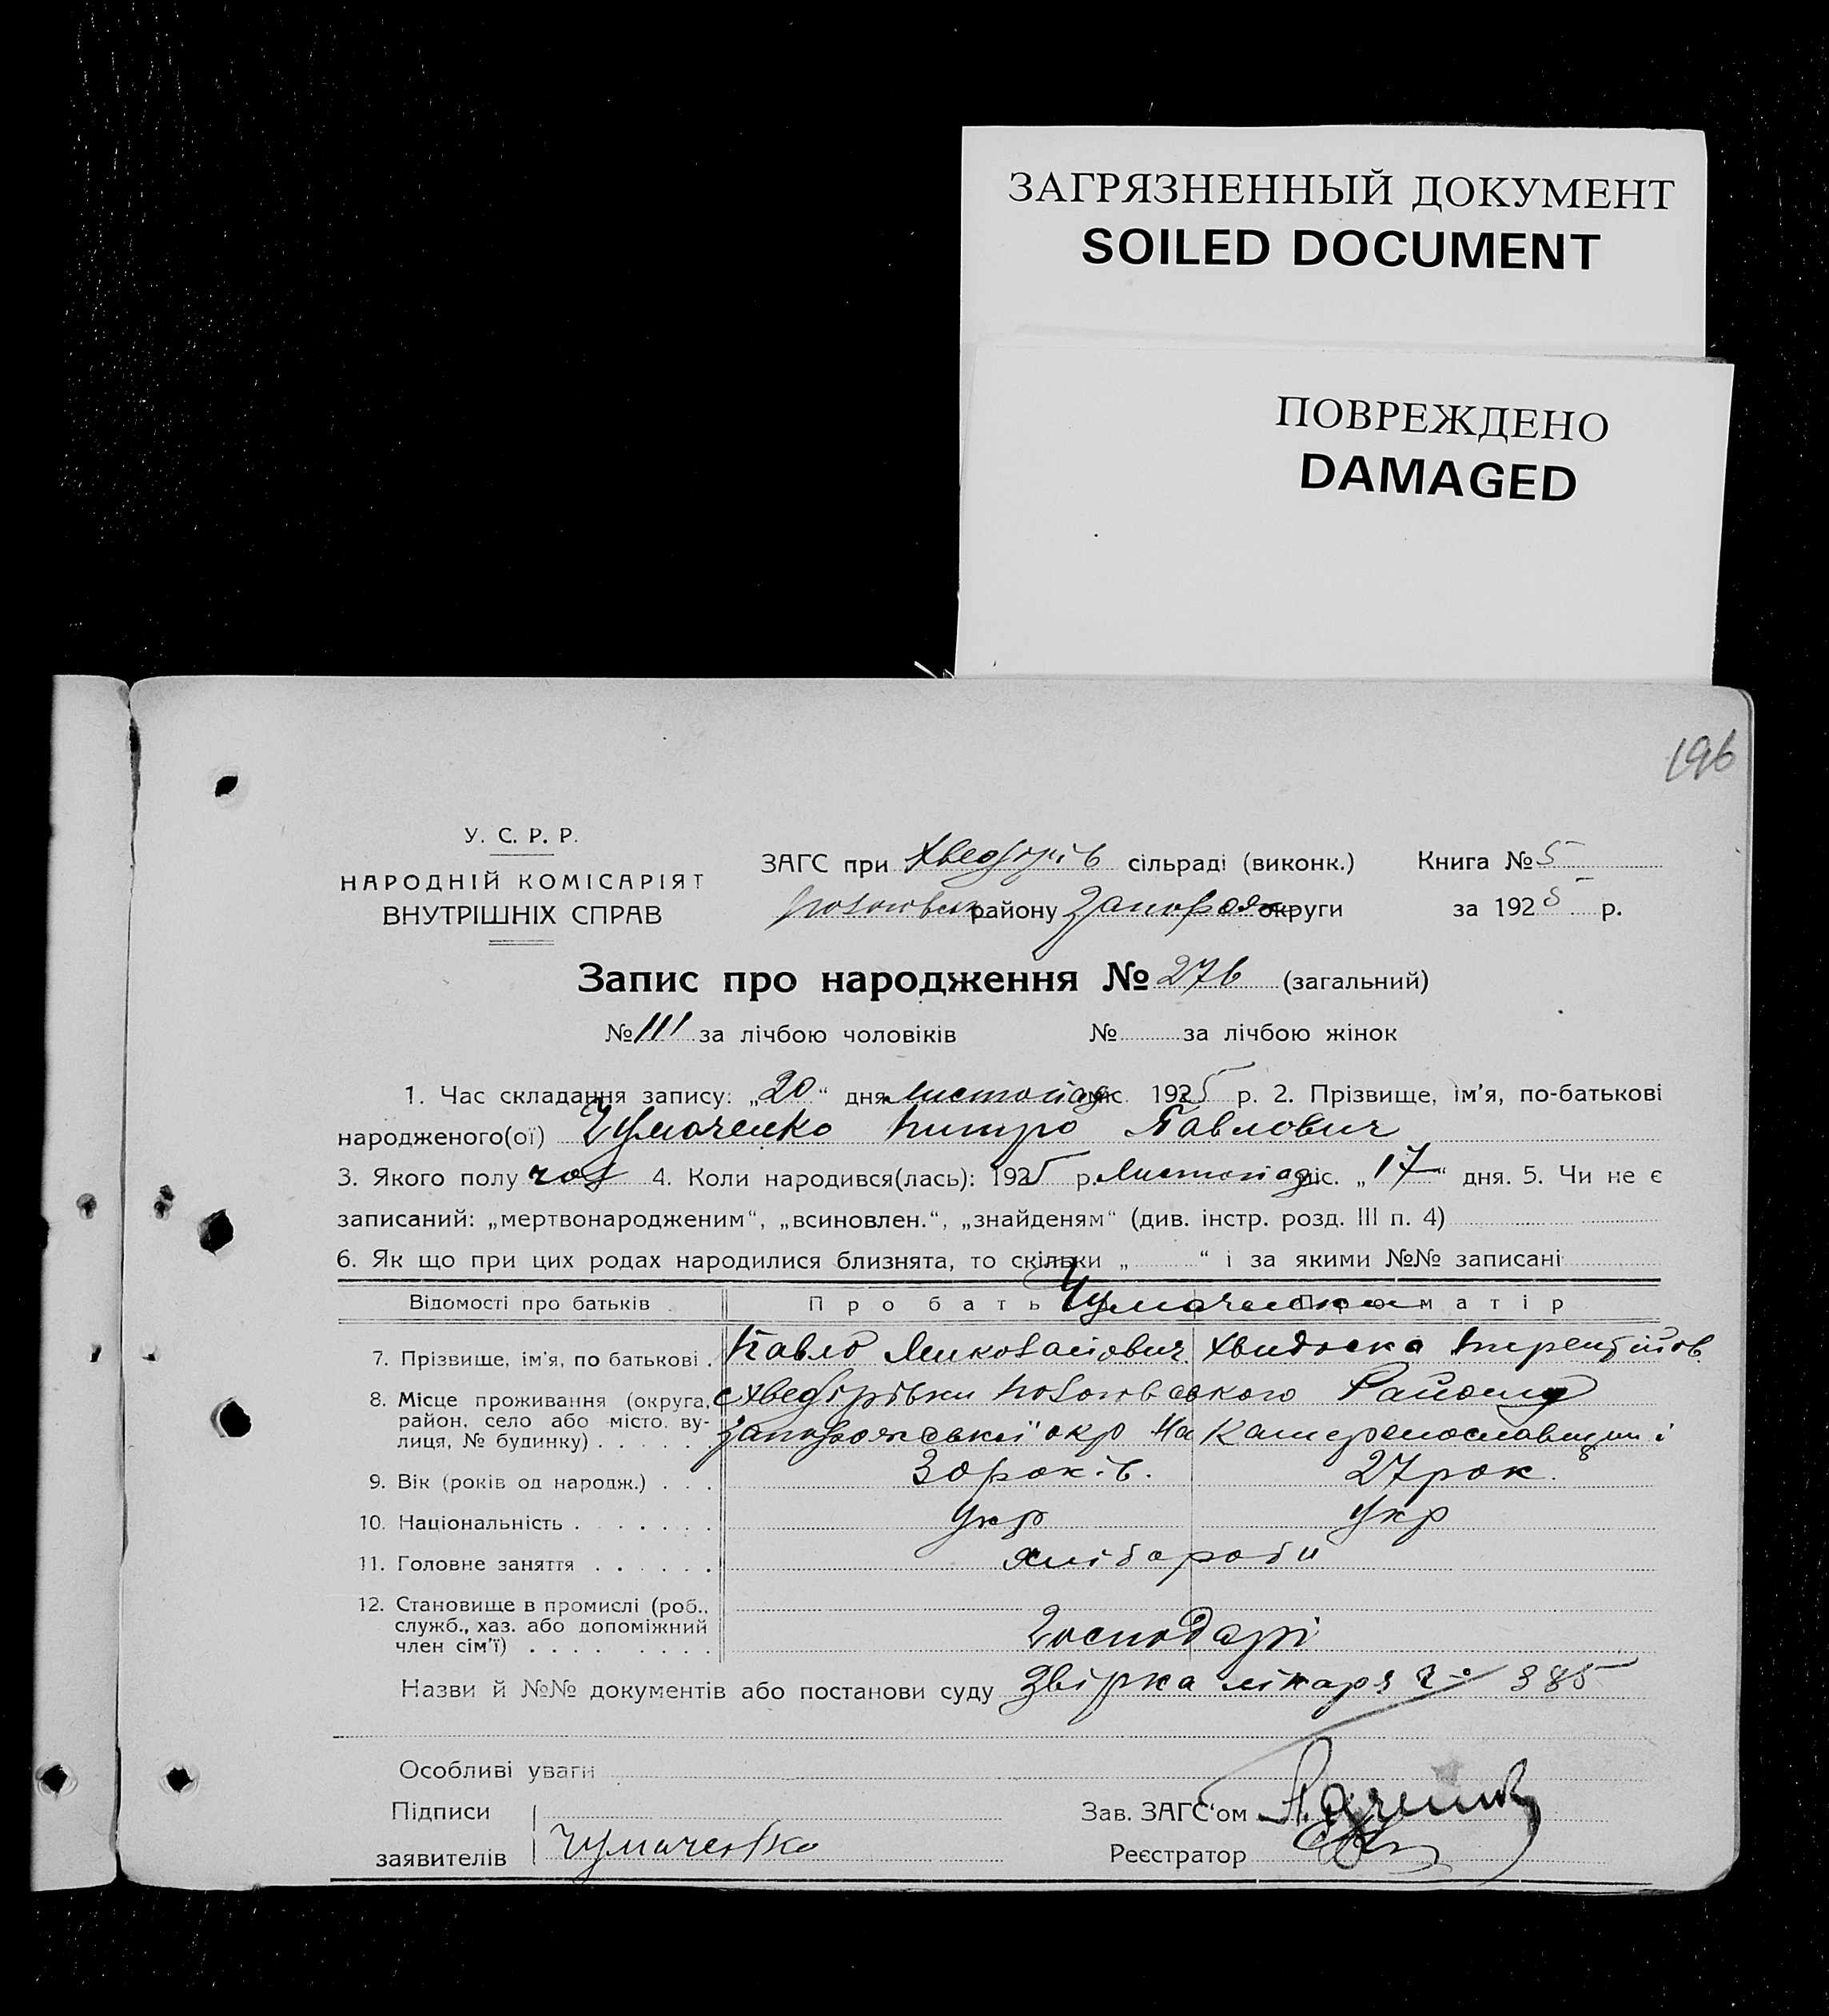 ЗАГРЯЗНЕННЫЙ ДОКУМЕНТ
SOILED DOCUMENT
ПОВРЕЖДЕНО
DAMAGED
196
У. С. Р. Р.
НАРОДНІЙ КОМІСАРІЯТ
ВНУТРІШНІХ СПРАВ
ЗАГС при Хведорів сільраді (виконк.) Книга № 5
району Запорож округи за 1925 р.
Запис про народження № 276 (загальний)
№ 111 за лічбою чоловіків № за лічбою жінок
1. Час складання запису: „20“ дня листопад міс. 1925 р. 2. Прізвище, ім'я, по-батькові
народженого(ої) Чумаченко Питро Павлович
3. Якого полу чол 4. Коли народився(лась): 1925 р. Листопад міс. „17“ дня. 5. Чи не є
записаний: „мертвонародженим“, „всиновлен.“, „знайденям“ (див. інстр. розд. III п. 4)
6. Як що при цих родах народилися близнята, то скільки „ “ і за якими №№ записані
Відомості про батьків Про батька Про матір
Чумаченки
7. Прізвище, ім'я, по батькові . Павло Миколайович Хвидоска Терентійов.
8. Місце проживання (округа, район, село або місто, вулиця, № будинку) . . . . . с Хведорівки Району
Запорожської окр На Катеринославщині
9. Вік (років од народж.) . . . 30 років. 27 рок.
10. Національність . . . . . . . Укр Укр
11. Головне заняття . . . . . . хлібороби
12. Становище в промислі (роб., служб., хаз. або допоміжний член сім'ї) . . . . . . . . Господарі
Назви й №№ документів або постанови суду Звірка лікаря 385
Особливі уваги
Підписи
заявителів Чумаченко
Зав. ЗАГС'ом
Реєстратор